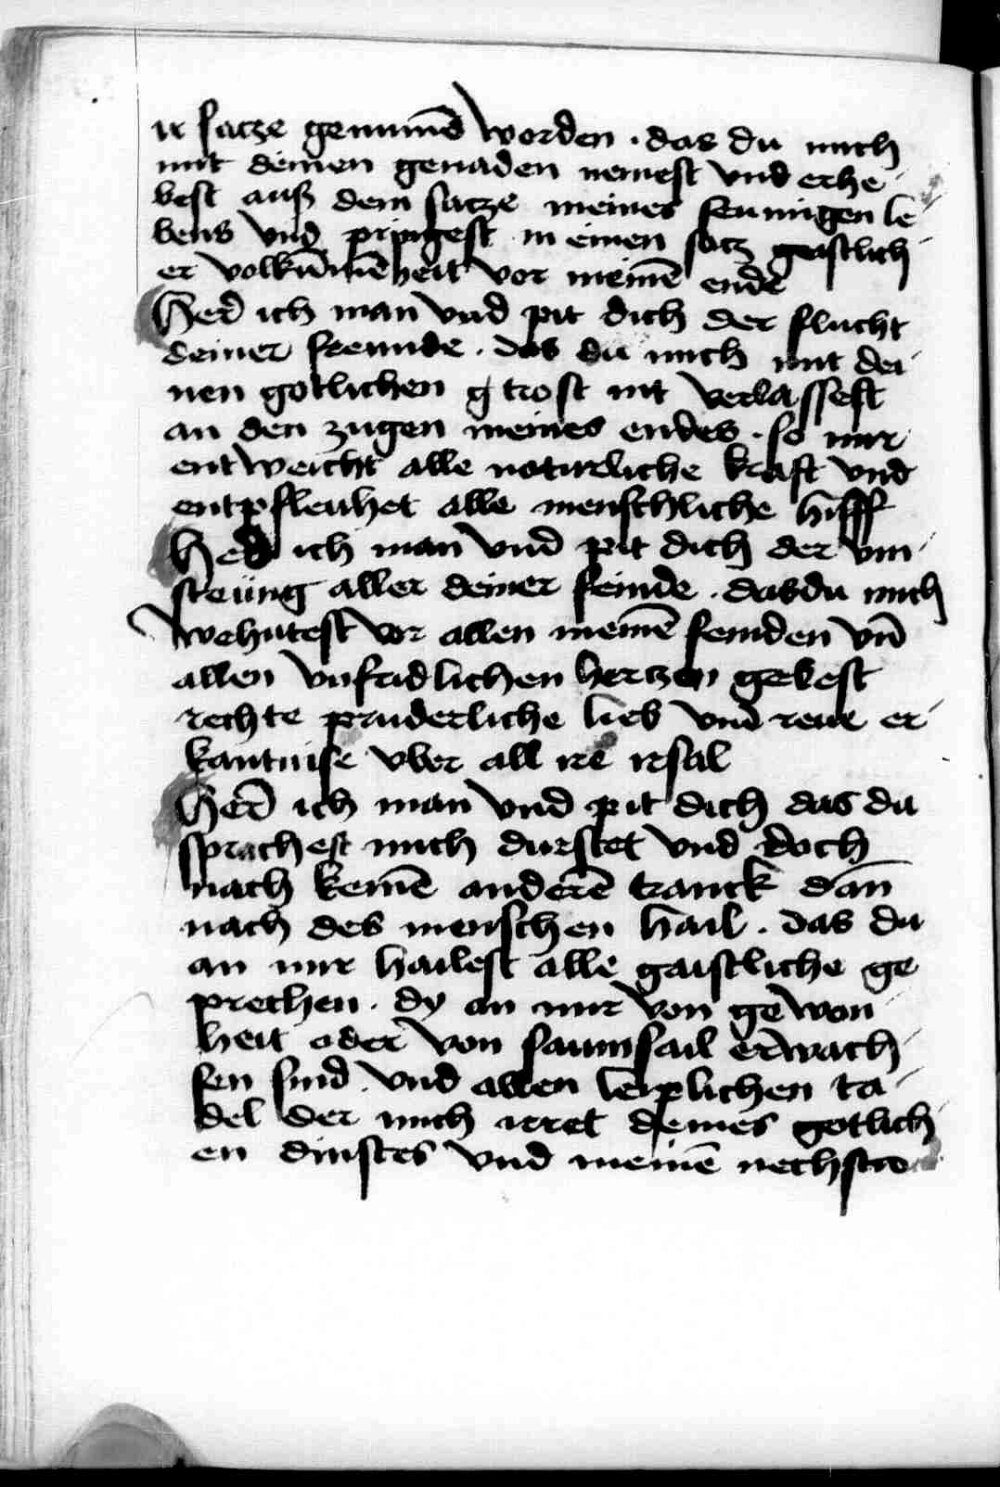 ir satze genumē worden . das du mich
mit deinen genaden nemest vnd erhe-
best auß dem satze meines seumigen le-
bens vnd pringest in einen satz geistlich-
er volkūmēheit vor meinē ende
Her̄ ich man vnd pit dich der flucht
deiner freunde . das du mich mit dei
nen gotlichen trost nit verlassest
an den zugen meines endes . so mir
entweicht alle naturliche kraft vnd
entpfleuhet alle menschliche hilff
Her̄ ich man vnd pit dich der vin-
steūng aller deiner feinde . das du mich
wehutest vor allen meinē feinden vn̄
allen vnfridlichen hertzen gebest
rechte pruderliche lieb vnd reue er-
kantnise vber all ire irsal
Her̄ ich man vnd pit dich das du
sprachest mich durstet vnd doch
nach keinē anderē tranck dan̄
nach des menschen hail . das du
an mir hailest alle gaistliche ge
prechen . dy an mir von gewon-
heit oder von saumsail erwach-
sen sind . vnd allen leiplichen ta-
del der mich irret deines gotlich-
en dinstes vnd meinē nechsten